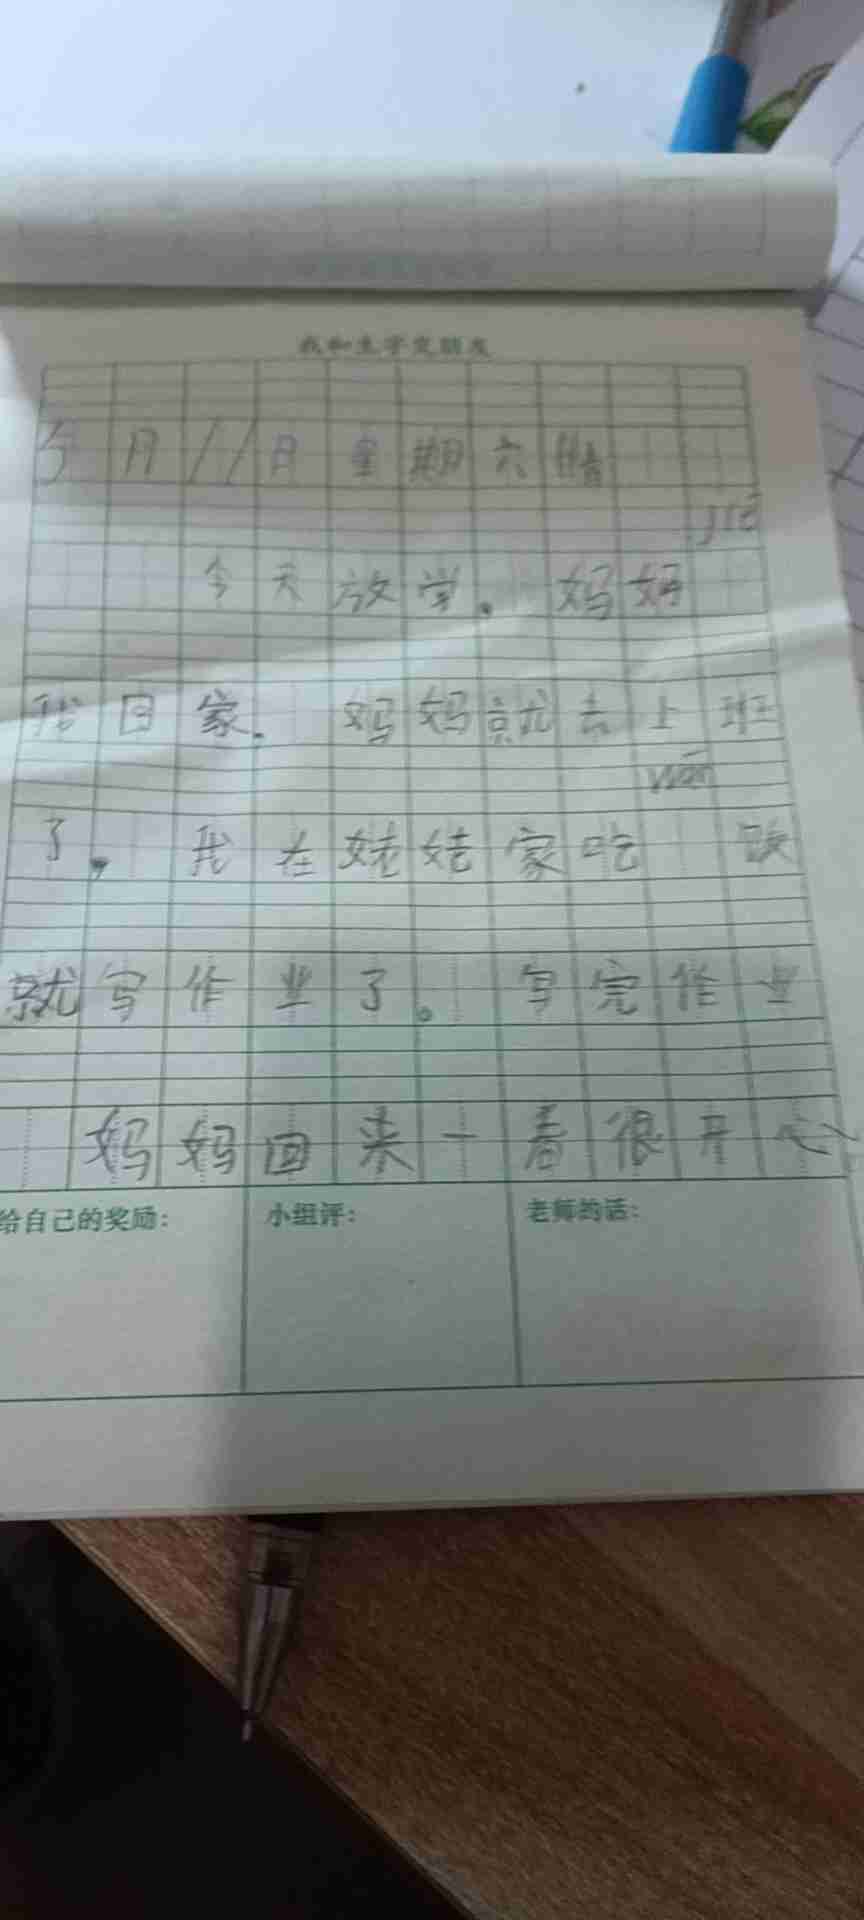 我和生字交朋友
月11日 星期六 晴
jiē
今天放学。妈妈
我回家。妈妈就去上班
wǎn
了。我在姥姥家吃 饭
就写作业了。写完作业
妈妈回来一看很开心
给自己的奖励:
小组评:
老师的话: